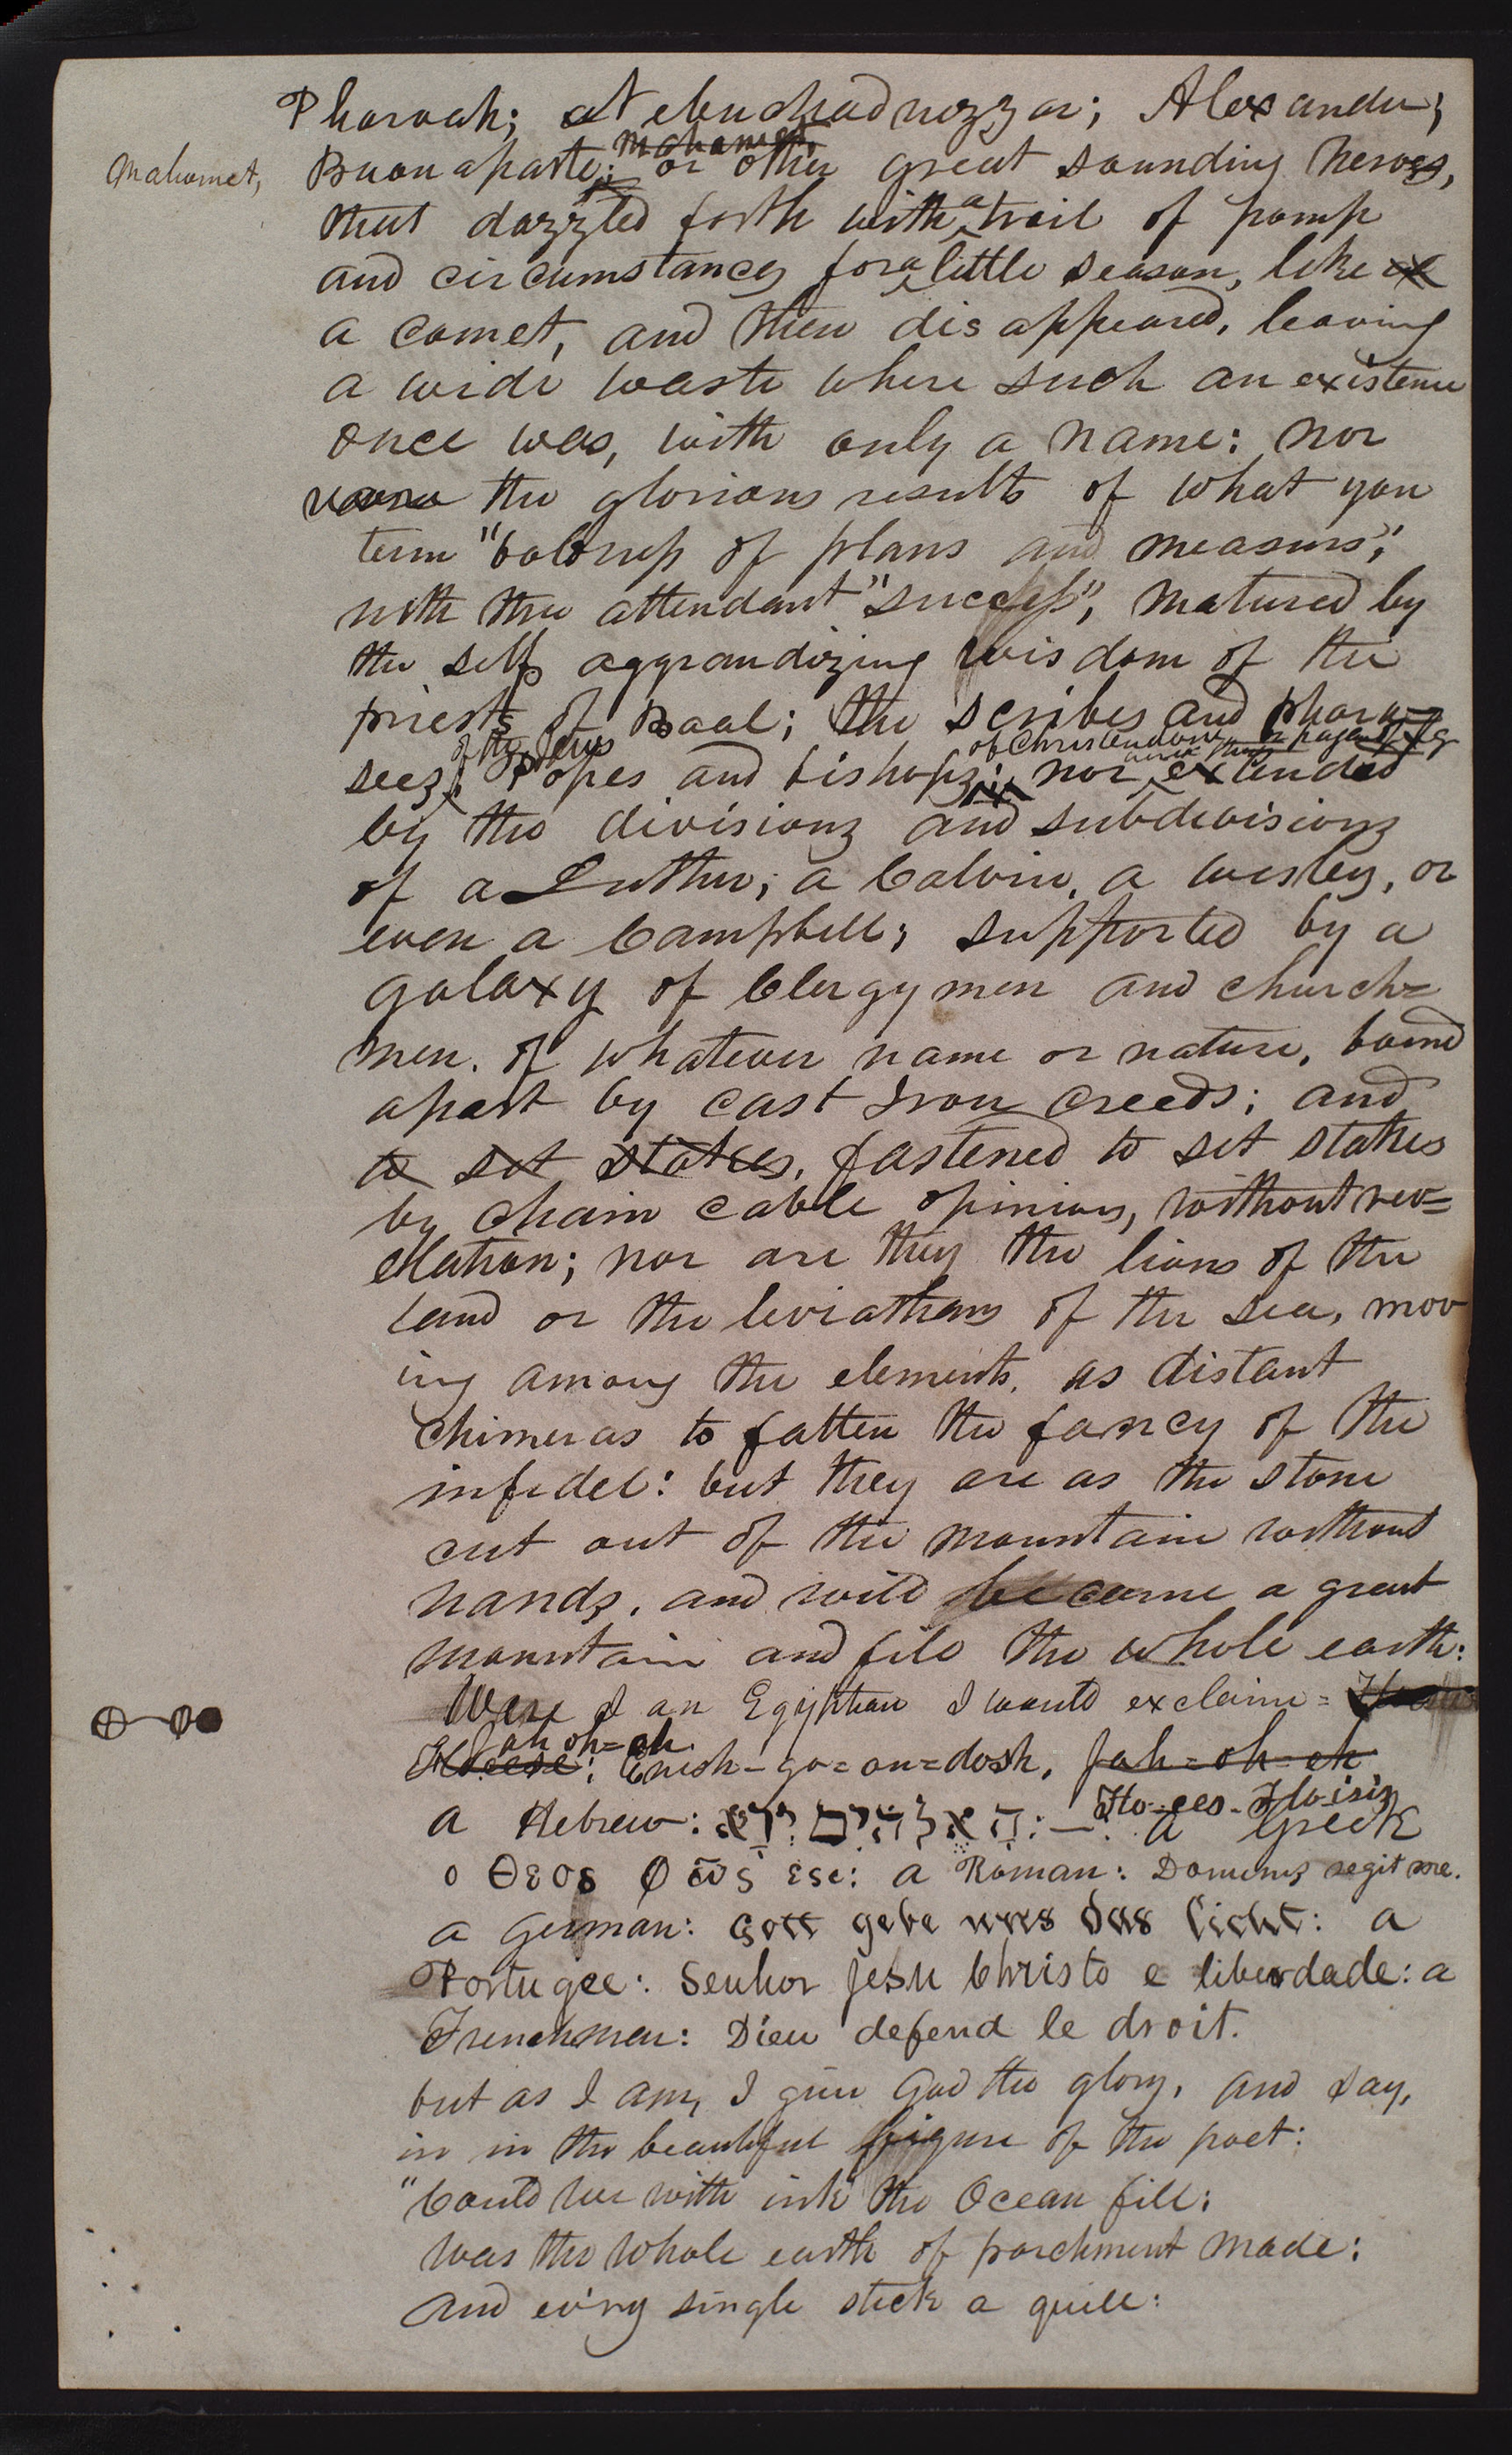 Pharoah; Nebuchadnezzar; Alexander;
Mahomet,
Mahomet,
Buonaparte; or other great sounding heroes,
that dazzled forth with a trail of pomp
and circumstances for a little season, like
a comet, and then disappeared, leaving
a wide waste where such an existence
once was, with only a name: nor
were the glorious results of what you
term "boldness of plans and measurs",
with the attendant "success", matured by
the self aggrandizing wisdom of the
priests of Baal; the scribes and phara=
of the Jews of Christendom or pagan
sees; Popes and bishops; nor extended
by the divisions and subdivisions
of a Luther, a Calvin, a Wesley, or
even a Campbell; supported by a
galaxy of Clergymen and church=
men. of whatever name or nature, bound
apart by cast Iron creeds; and
to set stakes, fastened to set stakes
by chain cable opinions, without rev=
elation; nor are they the lions of the
land or the leviathans of the sea, mov
ing among the elements, as distant
chimeras to fatten the fancy of the
infidel: but they are as the stone
cut out of the mountain without
hands, and will become a great
mountain and fill the whole earth:
Were I an Egyptian I would exclaim=
Jah oh=eh
: Enish-go=an=dosh, Jah=oh=eh
Flo-ees-Flo-isis
a Hebrew: האלהים ירא: —: a Greek
ο Θεος φως εσι: a Roman: Dominus regit me.
a German: Gott gebe uns das licht: a
Portugee: Senhor Jesu Christo e liberdade: a
Frenchman: Dieu defend le droit.
but as I am, I give God the glory, and say,
in in the beautiful figure of the poet:
"Could we with ink the Ocean fill;
was the whole earth of parchment made;
And ev'ry single stick a quill: